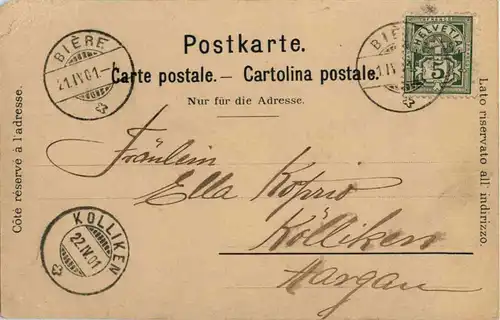 BIÈRE
21.IV.01.–
Postkarte.
Carte postale. – Cartolina postale.
Nur für die Adresse.
BIÈ
1.IV
HELVETIA
5
Côté réservé à l'adresse.
Lato riservato all' indirizzo.
Fräulein
Ella
Kölliken
Aargau
KÖLLIKEN
22.IV.01